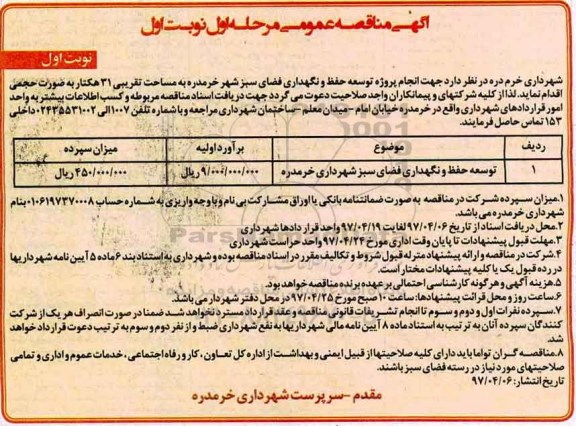 آگهی مناقصه عمومی مرحله اول نوبت اول
نوبت اول
شهرداری خرم دره در نظر دارد جهت انجام پروژه توسعه حفظ و نگهداری فضای سبز شهر خرمدره به مساحت تقریبی ۳۱ هکتار به صورت حجمی
اقدام نماید. لذا از کلیه شرکتهای و پیمانکاران واجد صلاحیت دعوت می گردد جهت دریافت اسناد مناقصه مربوطه و کسب اطلاعات بیشتر به واحد
امور قراردادهای شهرداری واقع در خرمدره خیابان امام - میدان معلم - ساختمان شهرداری مراجعه و یا شماره تلفن ۷ الی ۰۲۴۳۵۵۳۱۰۰۲ داخلی
۱۵۳ تماس حاصل فرمایند.
ردیف موضوع برآورد اولیه میزان سپرده
۱ توسعه حفظ و نگهداری فضای سبز شهرداری خرمدره ۹/۰۰۰/۰۰۰/۰۰۰ ریال ۴۵۰/۰۰۰/۰۰۰ ریال
۱.میزان سپرده شرکت در مناقصه به صورت ضمانتنامه بانکی یا اوراق مشارکت بی نام و یا وجه واریزی به شماره حساب ۰۱۰۶۱۹۷۳۷۰۰۰۸ بنام
شهرداری خرمدره می باشد.
۲.محل دریافت اسناد از تاریخ ۹۷/۰۴/۰۶ لغایت ۹۷/۰۴/۱۹ واحد قراردادها شهرداری
۳.مهلت قبول پیشنهادات تا پایان وقت اداری مورخ ۹۷/۰۴/۲۴ واحد حراست شهرداری
۴.شرکت در مناقصه و ارائه پیشنهاد منزله قبول شروط و تکالیف مقرر در اسناد مناقصه بوده و شهرداری به استناد بند ۶ ماده ۵ آیین نامه شهرداریها
در رد قبول یک یا کلیه پیشنهادات مختار است.
۵.هزینه آگهی و هرگونه کارشناسی احتمالی بر عهده برنده مناقصه خواهد بود.
۶.ساعت روز و محل قرائت پیشنهادها: ساعت ۱۰ صبح مورخ ۹۷/۰۴/۲۵ در محل دفتر شهردار می باشد.
۷.سپرده نفرات اول و دوم و سوم تا انجام تشریفات قانونی مناقصه و عقد قرارداد مسترد نخواهد شد ضمنا در صورت انصراف هر یک از شرکت
کنندگان سپرده آنان به ترتیب به استناد ماده ۸ آیین نامه مالی شهرداریها به نفع شهرداری ضبط و از نفر دوم و سوم به ترتیب دعوت قرارداد خواهد
شد.
۸.مناقصه گران تواما باید دارای کلیه صلاحیتها از قبیل ایمنی و بهداشت از اداره کل تعاون ، کار و رفاه اجتماعی ، خدمات عموم و اداری و تمامی
صلاحیتهای مورد نیاز در رسته فضای سبز باشند.
تاریخ انتشار: ۹۷/۰۴/۰۶
مقدم - سرپرست شهرداری خرمدره